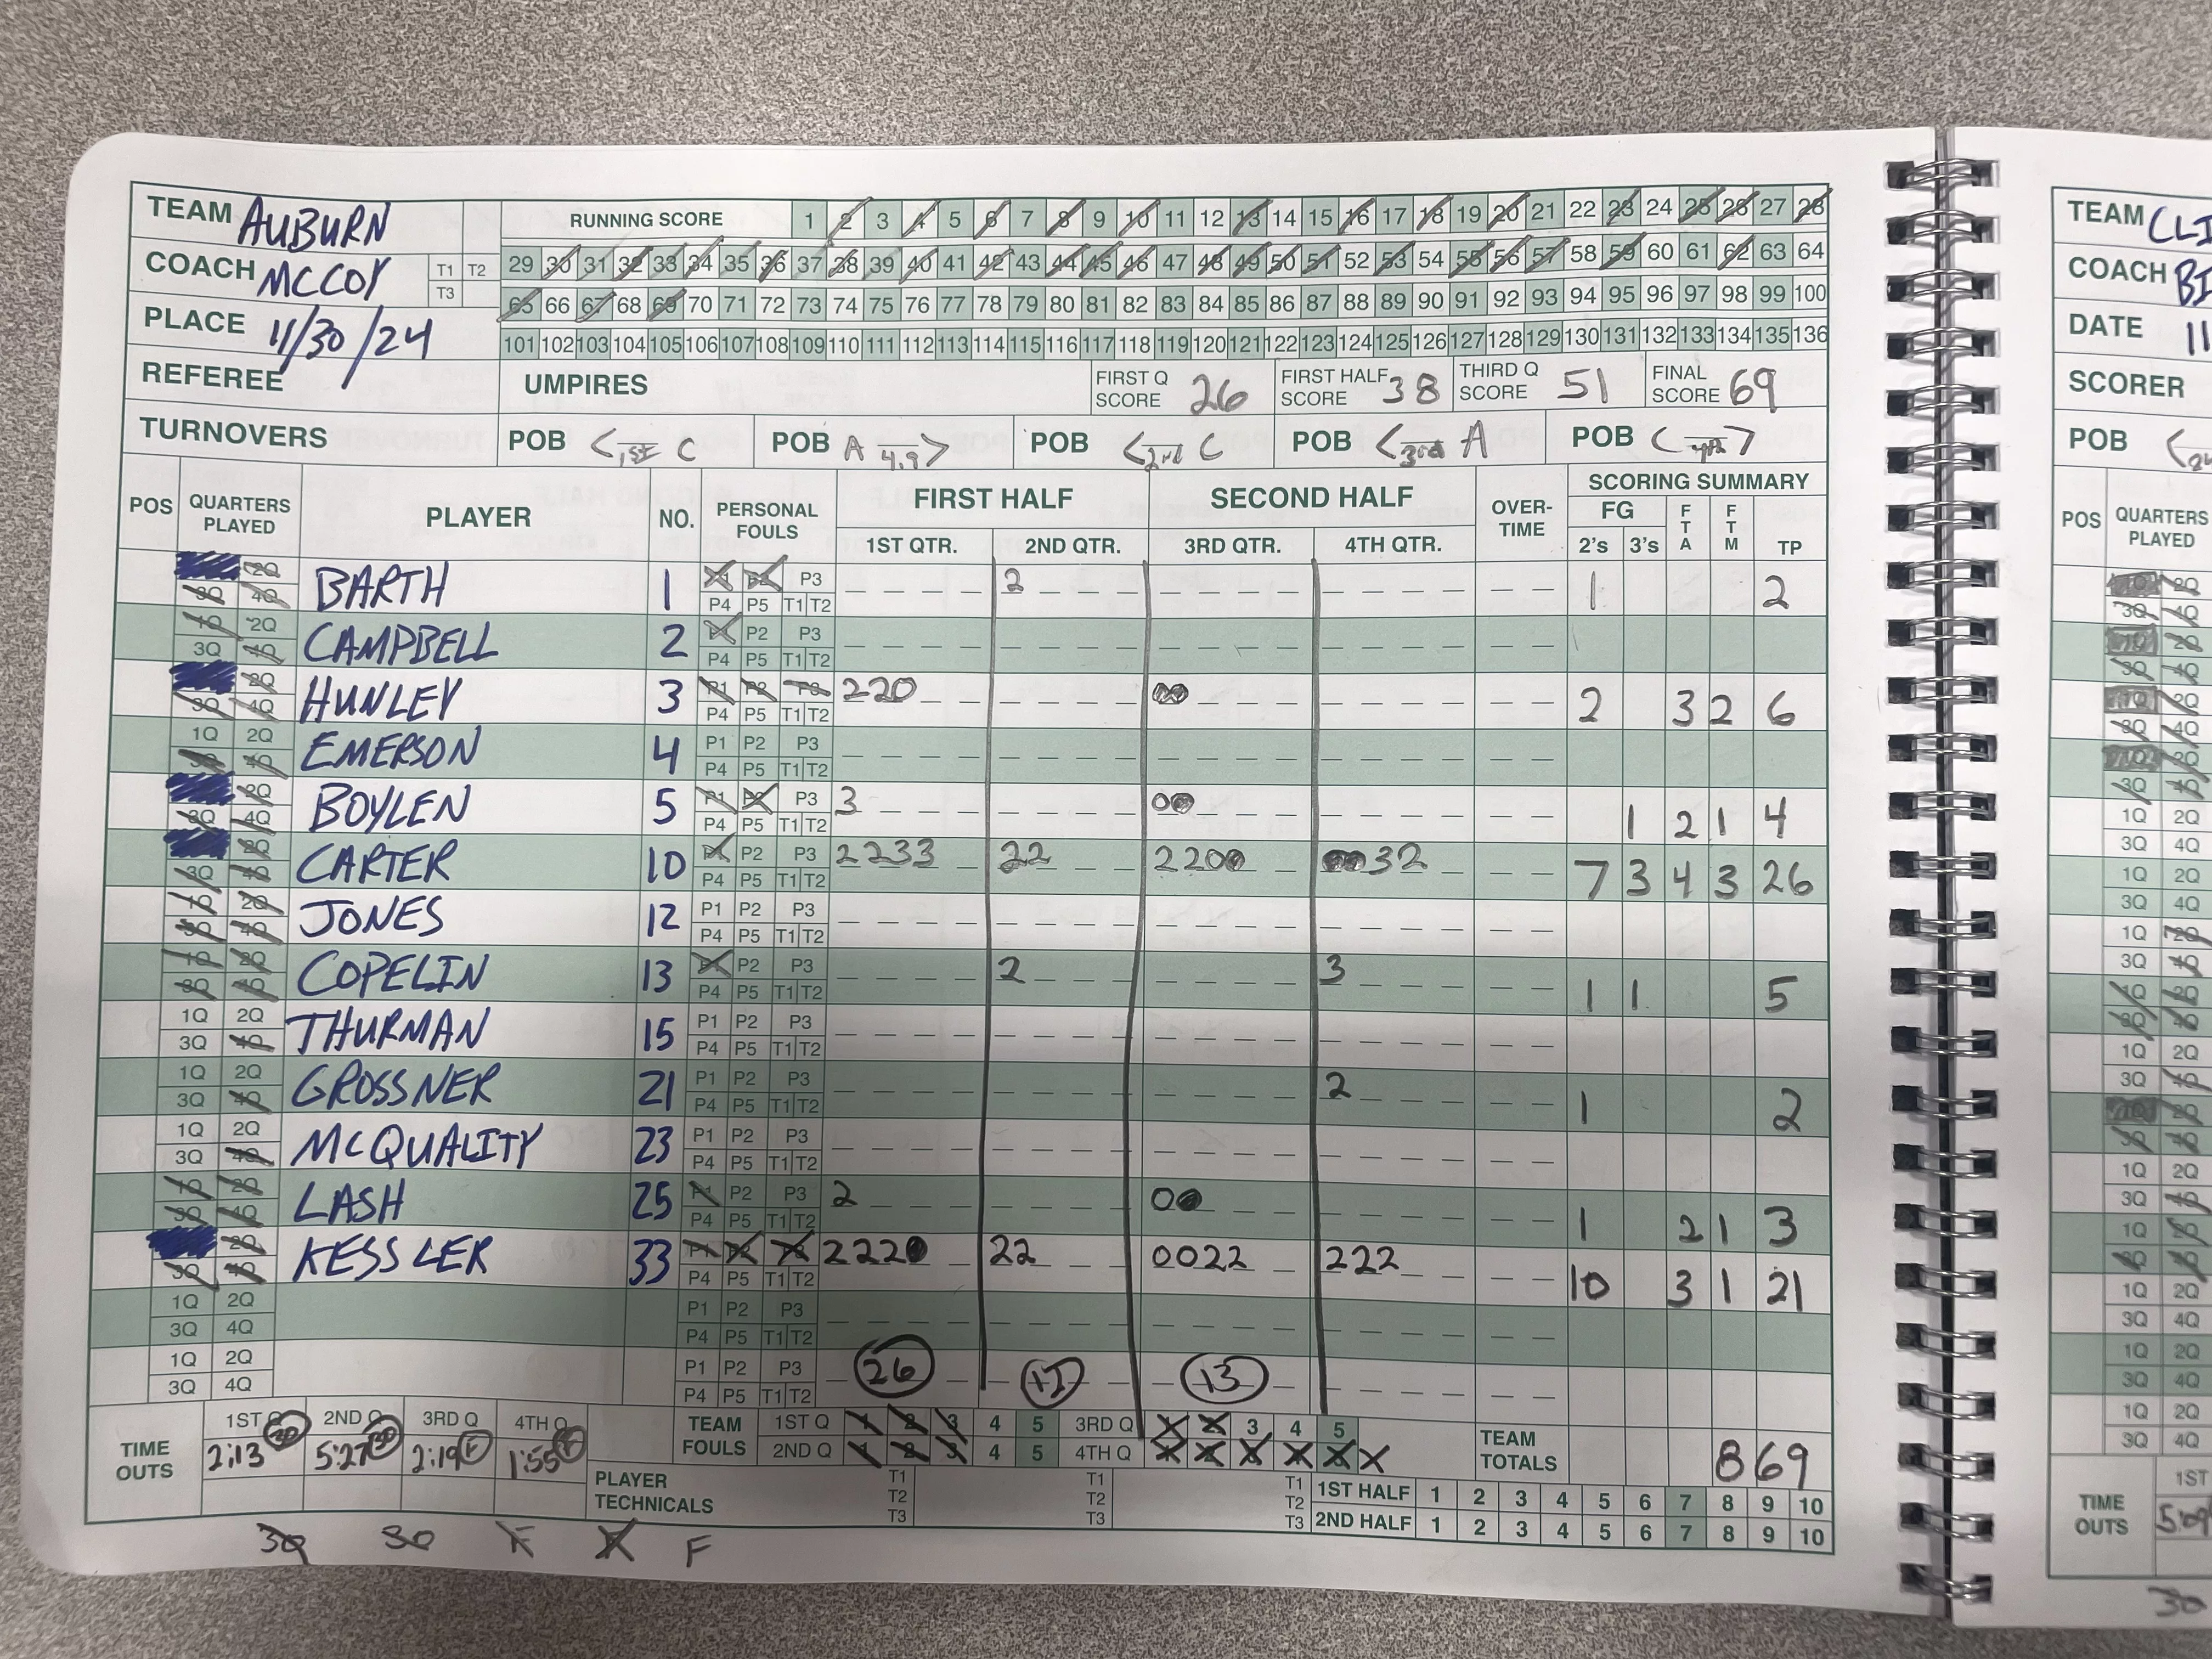 TEAM AUBURN
COACH MCCOY T1 T2 T3
PLACE 11/30/24
REFEREE
TURNOVERS
RUNNING SCORE 1 2 3 4 5 6 7 8 9 10 11 12 13 14 15 16 17 18 19 20 21 22 23 24 25 26 27 28
29 30 31 32 33 34 35 36 37 38 39 40 41 42 43 44 45 46 47 48 49 50 51 52 53 54 55 56 57 58 59 60 61 62 63 64
65 66 67 68 69 70 71 72 73 74 75 76 77 78 79 80 81 82 83 84 85 86 87 88 89 90 91 92 93 94 95 96 97 98 99 100
101 102 103 104 105 106 107 108 109 110 111 112 113 114 115 116 117 118 119 120 121 122 123 124 125 126 127 128 129 130 131 132 133 134 135 136
UMPIRES FIRST Q SCORE 26 FIRST HALF SCORE 38 THIRD Q SCORE 51 FINAL SCORE 69
POB 1st C POB A 4.9 POB 2nd C POB 3rd A POB 4th
POS QUARTERS PLAYED PLAYER NO. PERSONAL FOULS FIRST HALF SECOND HALF OVER-TIME SCORING SUMMARY
1ST QTR. 2ND QTR. 3RD QTR. 4TH QTR. FG 2's 3's FTA FTM TP
2Q 3Q 4Q BARTH 1 P1 P2 P3 P4 P5 T1 T2 2 1 2
1Q 2Q 3Q 4Q CAMPBELL 2 P1 P2 P3 P4 P5 T1 T2
2Q 3Q 4Q HUNLEY 3 P1 P2 P3 P4 P5 T1 T2 220 00 2 3 2 6
1Q 2Q 3Q 4Q EMERSON 4 P1 P2 P3 P4 P5 T1 T2
2Q 3Q 4Q BOYLEN 5 P1 P2 P3 P4 P5 T1 T2 3 00 1 2 1 4
2Q 3Q 4Q CARTER 10 P1 P2 P3 P4 P5 T1 T2 2233 22 2200 0032 7 3 4 3 26
1Q 2Q 3Q 4Q JONES 12 P1 P2 P3 P4 P5 T1 T2
1Q 2Q 3Q 4Q COPELIN 13 P1 P2 P3 P4 P5 T1 T2 2 3 1 1 5
1Q 2Q 3Q 4Q THURMAN 15 P1 P2 P3 P4 P5 T1 T2
1Q 2Q 3Q 4Q GROSSNER 21 P1 P2 P3 P4 P5 T1 T2 2 1 2
1Q 2Q 3Q 4Q MCQUALITY 23 P1 P2 P3 P4 P5 T1 T2
1Q 2Q 3Q 4Q LASH 25 P1 P2 P3 P4 P5 T1 T2 2 00 1 2 1 3
2Q 3Q 4Q KESSLER 33 P1 P2 P3 P4 P5 T1 T2 2220 22 0022 222 10 3 1 21
1Q 2Q 3Q 4Q P1 P2 P3 P4 P5 T1 T2
1Q 2Q 3Q 4Q P1 P2 P3 P4 P5 T1 T2 26 12 13
TIME OUTS 1ST Q 30 2ND Q 30 3RD Q F 4TH Q F
2:13 5:27 2:19 1:55
TEAM FOULS 1ST Q 1 2 3 4 5 3RD Q 1 2 3 4 5
2ND Q 1 2 3 4 5 4TH Q 1 2 3 4 5 X
TEAM TOTALS 8 69
PLAYER TECHNICALS T1 T2 T3 T1 T2 T3 T1 T2 T3
1ST HALF 1 2 3 4 5 6 7 8 9 10
2ND HALF 1 2 3 4 5 6 7 8 9 10
30 30 F F F
TEAM CLI
COACH BI
DATE 11
SCORER
POB
POS QUARTERS PLAYED
2Q 3Q 4Q
2Q 3Q 4Q
2Q 3Q 4Q
2Q 3Q 4Q
1Q 2Q 3Q 4Q
1Q 2Q 3Q 4Q
1Q 2Q 3Q 4Q
1Q 2Q 3Q 4Q
1Q 2Q 3Q 4Q
2Q 3Q 4Q
1Q 2Q 3Q 4Q
1Q 2Q 3Q 4Q
1Q 2Q 3Q 4Q
1Q 2Q 3Q 4Q
1Q 2Q 3Q 4Q
TIME OUTS 1ST
5:09
30